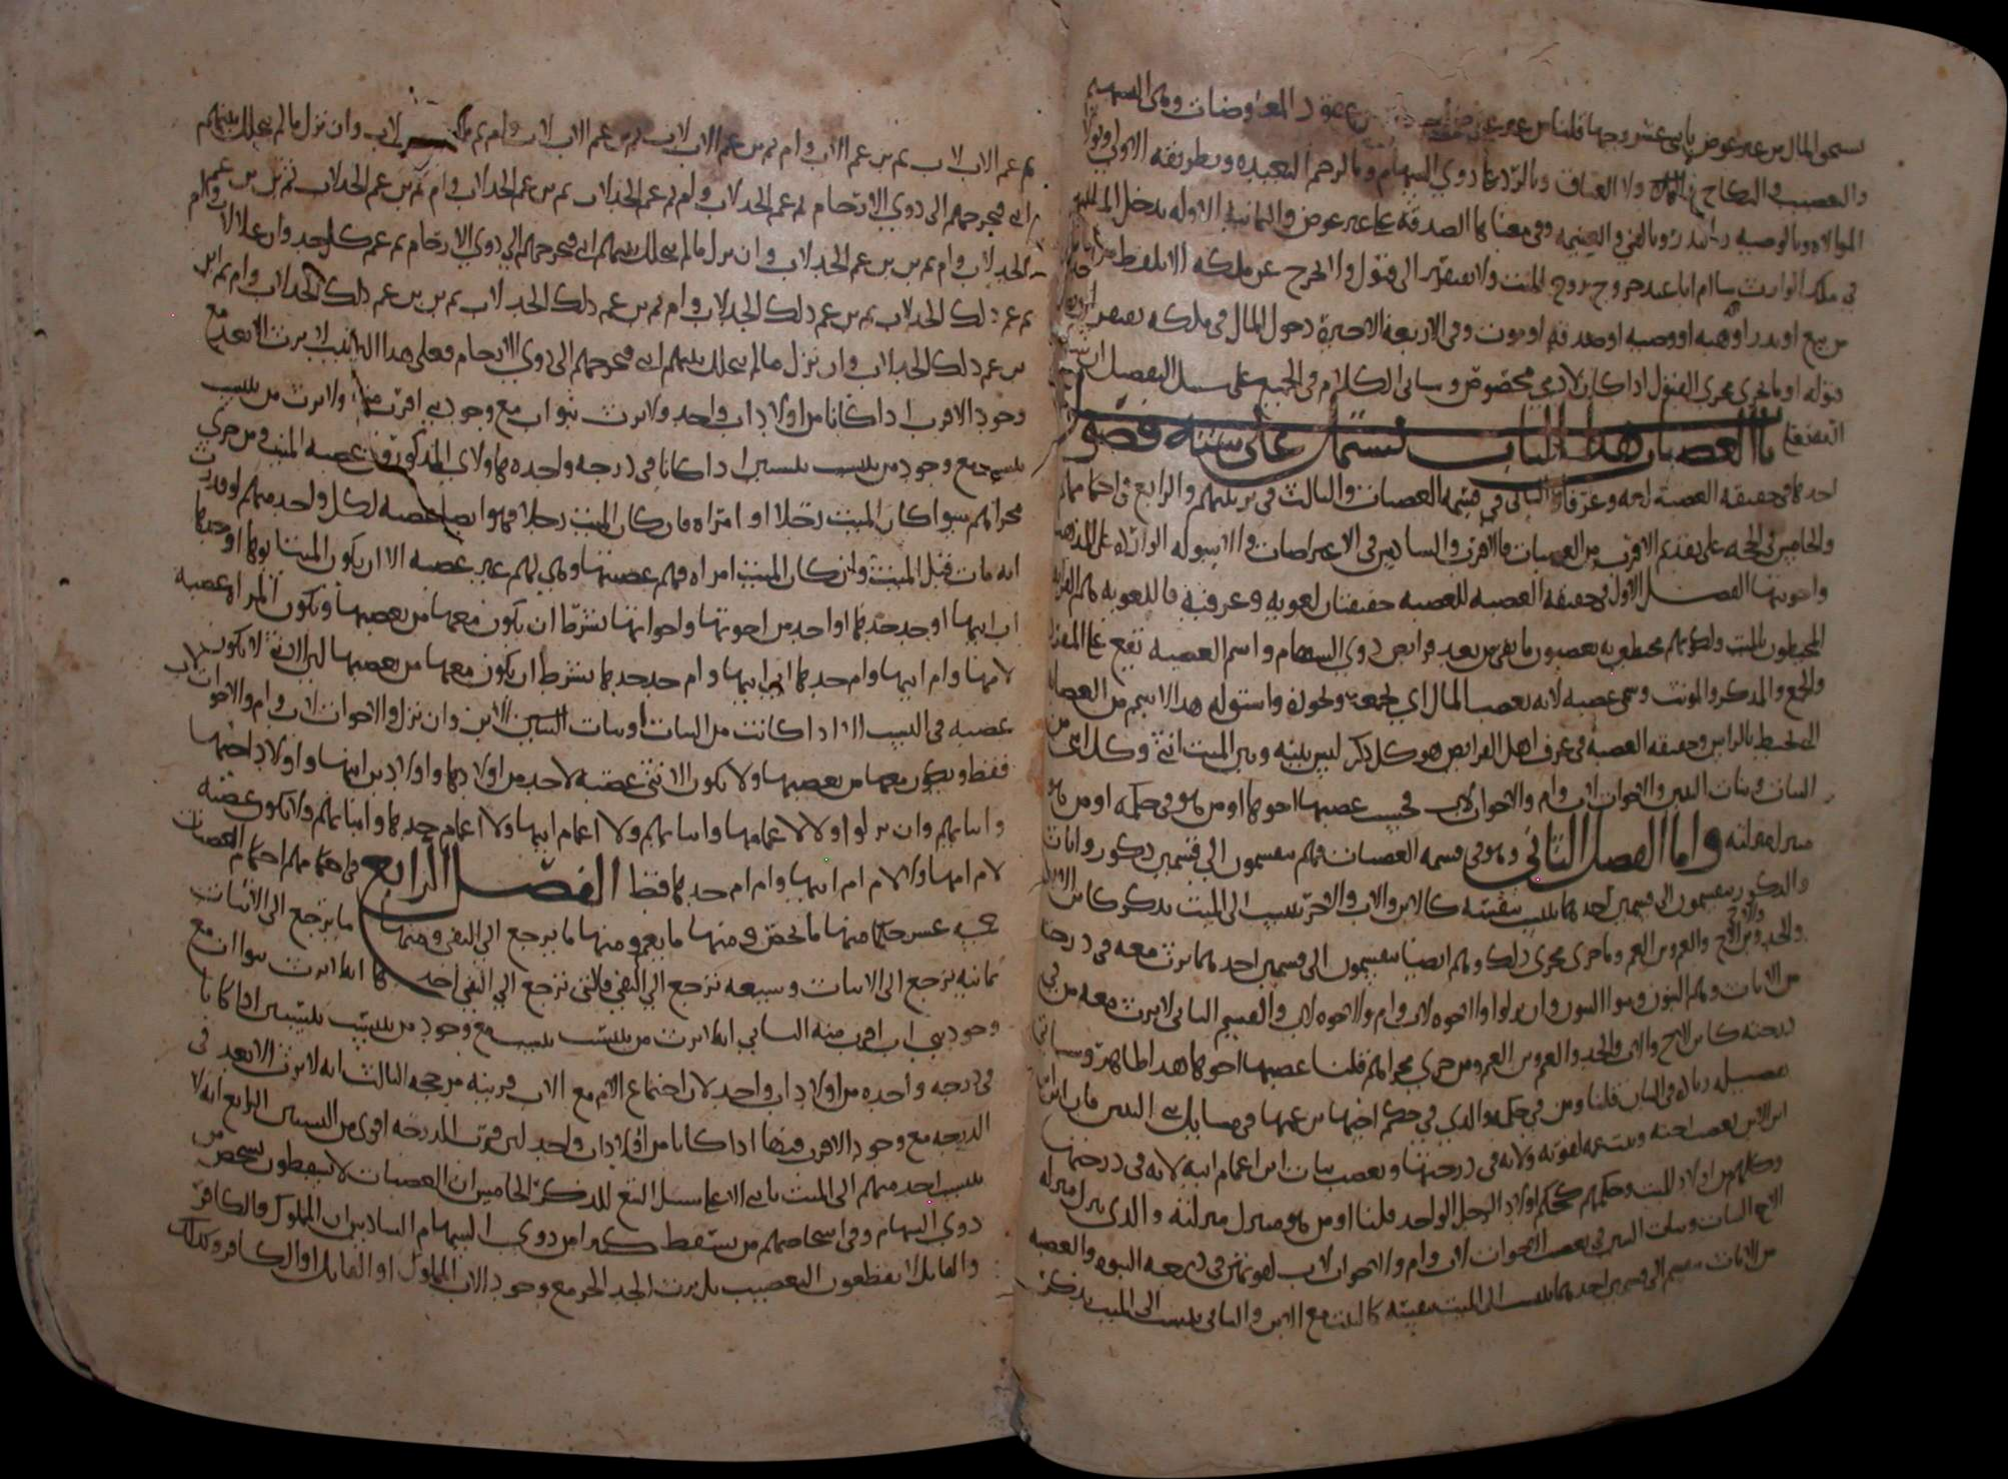 يستحق المال من غير عوض باثني عشر وجها قلنا من غير عوض عقود المعاوضات وهي السهم
والتعصيب والنكاح ولا العتاق وبالرد على ذوي السهام وبالرحم البعيده وبطريقه الاولى وبولا
الموالاه وبالوصيه وبالنذر وبالفي والغنيمه وفي معناها الصدقه على غير عوض والثمانيه الاوله يدخل المال بها
في ملك الوارث شا ام ابا عند خروج روح الميت ولا يفتقر الى قبول ولا يخرج عن ملكه الا بلفظ
من بيع او نذر او هبه او وصيه او صدقه او موت وفي الاربعة الاخيرة دخول المال في ملكه يفتقر الى
قبوله او ما جرى مجرى القبول اذا كان لادمي مخصوص وسياتي الكلام في الجميع على سبيل التفصيل ان شا
الله تعالى باب العصبات هذا الباب يشتمل على ستة فصول
احدها في حقيقه العصبة لغه وعرفا والثاني في قسمه العصبات والثالث في ترتيبهم والرابع في احكامهم
والخامس في الحجه على تقديم الاقرب من العصبات فالاقرب والسادس في الاعتراضات والاسوله الوارده على المذهب
واجوبتها الفصل الاول في حقيقه العصبه للعصبه حقيقتان لغويه وعرفيه فاللغويه هم القرابه
المحيطون بالميت ولكونهم محيطين به يعصبون ما بقي من بعد فرايض ذوي السهام واسم العصبه يقع على المفرد
والجمع والمذكر والمونث وسمي عصبه لانه يعصب المال اي يجمعه ويحوزه واشتق له هذا الاسم من العصابه
التي تحيط بالراس وحقيقه العصبه في عرف اهل الفرايض هو كل ذكر ليس بينه وبين الميت انثى وكل انثى من
البنات وبنات البنين والاخوات لاب وام والاخوات لاب بحيث عصبها اخوها او من هو في حكمه او من هو
منزل منزلته واما الفصل الثاني وهو في قسمه العصبات فهم ينقسمون الى قسمين ذكور واناث
والذكور ينقسمون الى قسمين احدهما ينتسب بنفسه كالابن والاب والاخر ينتسب الى الميت بذكر كابن الابن
والجد وابن الاخ والعم وابن العم وما جرى مجرى ذلك وهم ايضا ينقسمون الى قسمين احدهما يرث معه في درجته
من الاناث وهم البنون وبنوا البنين وان نزلوا والاخوه لاب وام والاخوه لاب والقسم الثاني لا يرث معه من في
درجته كابن الاخ والاب والجد والعم وابن العم ومن جرى مجراهم قلنا عصبها اخوها هذا ظاهر وسياتي
تفصيله في الباب قلنا ومن في حكمه والذي في حكم اخيها ابن عمها في مسايل بني البنين فان ابن
ابن الابن يعصب اخته وبنت عمه لقوته ولانه في درجتها ويعصب بنات ابن اعمام ابيه لانه في درجتها
وكلهم من اولاد الميت وحكمهم كحكم اولاد الرجل الواحد قلنا او من هو منزل منزلته والذي نزل منزله
الاخ البنات وبنات البنين في تعصيب الاخوات لاب وام والاخوات لاب لقوتهن في درجه البنوه والعصبه
من الاناث تنقسم الى قسمين احدهما ينتسب الى الميت بنفسه كالبنت مع الابن والثاني ينتسب الى الميت بذكر
ثم عم الاب لاب ثم بن عم الاب لاب وام ثم بن عم الاب لاب وان نزل ما لم يتخلل بينهم
انثى فتخرجهم الى ذوي الارحام ثم عم الجد لاب وام ثم عم الجد لاب ثم بن عم الجد لاب وام ثم بن عم الجد لاب ثم بن بن عم
الجد لاب وام ثم بن بن عم الجد لاب وان نزل ما لم يتخلل بينهم انثى فتخرجهم الى ذوي الارحام ثم عم كل جد وان علا لاب وام
ثم عم ذلك الجد لاب ثم بن عم ذلك الجد لاب وام ثم بن عم ذلك الجد لاب ثم بن بن عم ذلك الجد لاب وام ثم ابن
بن عم ذلك الجد لاب وان نزل ما لم يتخلل بينهم انثى فتخرجهم الى ذوي الارحام فعلى هذا الترتيب لا يرث الابعد مع
وجود الاقرب اذا كانا من اولاد اب واحد ولا يرث بنو اب مع وجود بني اب اقرب منه ولا يرث من ينتسب
بنسب مع وجود من ينتسب بنسبين اذا كانا في درجه واحده وهاولاي المذكورون عصبه الميت ومن جرى
مجراهم سوا كان الميت رجلا او امراه فان كان الميت رجلا فهو ايضا عصبه لكل واحد منهم لو قدرت
انه مات قبل الميت وان كان الميت امراه فهم عصبتها وهي لهم غير عصبه الا ان يكون الميت ابوها او جدها
اب ابيها او جد جدها او احد من اخوتها واخواتها بشرط ان يكون معها من يعصبها وتكون المراه عصبة
لامها وام ابيها وام جدها اب ابيها وام جد جدها بشرط ان يكون معها من يعصبها لان الانثى لا تكون
عصبه في النسب الا اذا كانت من البنات او بنات البنين الابن وان نزل والاخوات لاب وام والاخوات لاب
فقط ويكون معها من يعصبها ولا تكون الانثى عصبة لاحد من اولادها واولاد بن ابنها واولاد اختها
وابنايهم وان نزلوا ولا لاعمامها وابنايهم ولا اعمام ابيها ولا اعمام جدها وابنايهم ولا تكون عصبة
لام امها ولا لام ام ابيها وام ام جدها فقط الفصل الرابع في احكامهم احكام العصبات
خمسه عشر حكما منها ما يخص ومنها ما يعم ومنها ما يرجع الى النفي ومنها ما يرجع الى الاثبات
ثمانيه ترجع الى الاثبات وسبعه ترجع الى النفي فالتي ترجع الى النفي احدها انه لا يرث بنوا اب مع
وجود بني اب اقرب منه الثاني انه لا يرث من ينتسب بنسب مع وجود من ينتسب بنسبين اذا كانا
في درجه واحده من اولاد اب واحد لان اجتماع الام مع الاب قرينه مرجحه الثالث انه لا يرث الابعد في
الدرجه مع وجود الاقرب فيها اذا كانا من اولاد اب واحد لان قرب الدرجه اقوى من النسبين الرابع انه لا
ينتسب احد منهم الى الميت بانثى الا على سبيل التبع للذكر الخامس ان العصبات لا يسقطون شخصا من
ذوي السهام وفي اشخاصهم من يسقط كثيرا من ذوي السهام السادس ان المملوك والكافر
والقاتل لا يقطعون التعصيب بل يرث الجد الحر مع وجود الاب المملوك او القاتل او الكافر وكذلك